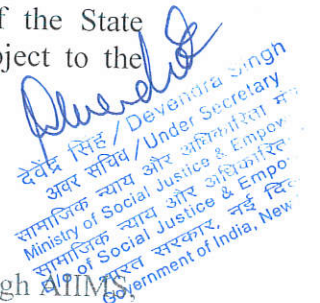 f the State
ject to the
देवेंद्र सिंह / Devendra Singh
अवर सचिव / Under Secretary
सामाजिक न्याय और अधिकारिता
Ministry of Social Justice & Empow
सामाजिक न्याय और अधिकारिता
of Social Justice & Empo
भारत सरकार, नई
Government of India, New
gh AIIMS,